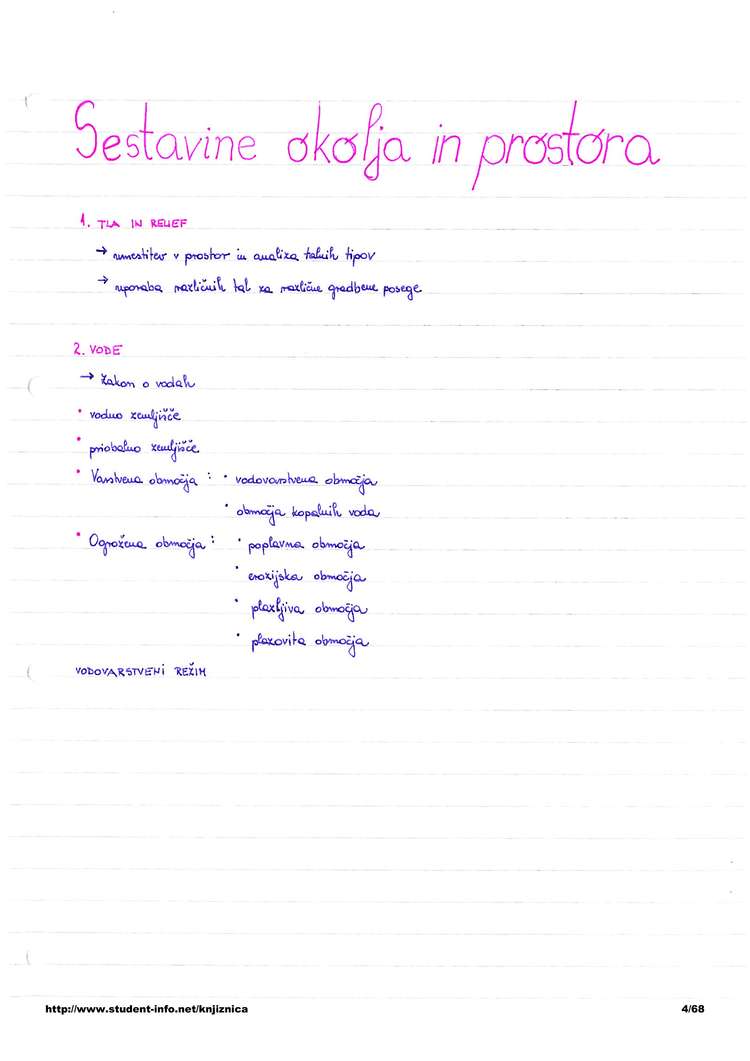 Sestavine okolja in prostora
1. TLA IN RELIEF
→ umestitev v prostor in analiza talnih tipov
→ uporaba različnih tal za različne gradbene posege
2. VODE
→ Zakon o vodah
• vodno zemljišče
• priobalno zemljišče
• Varstvena območja : • vodovarstvena območja
• območja kopalnih voda
• Ogrožena območja : • poplavna območja
• erozijska območja
• plazljiva območja
• plazovita območja
VODOVARSTVENI REŽIM
http://www.student-info.net/knjiznica 4/68